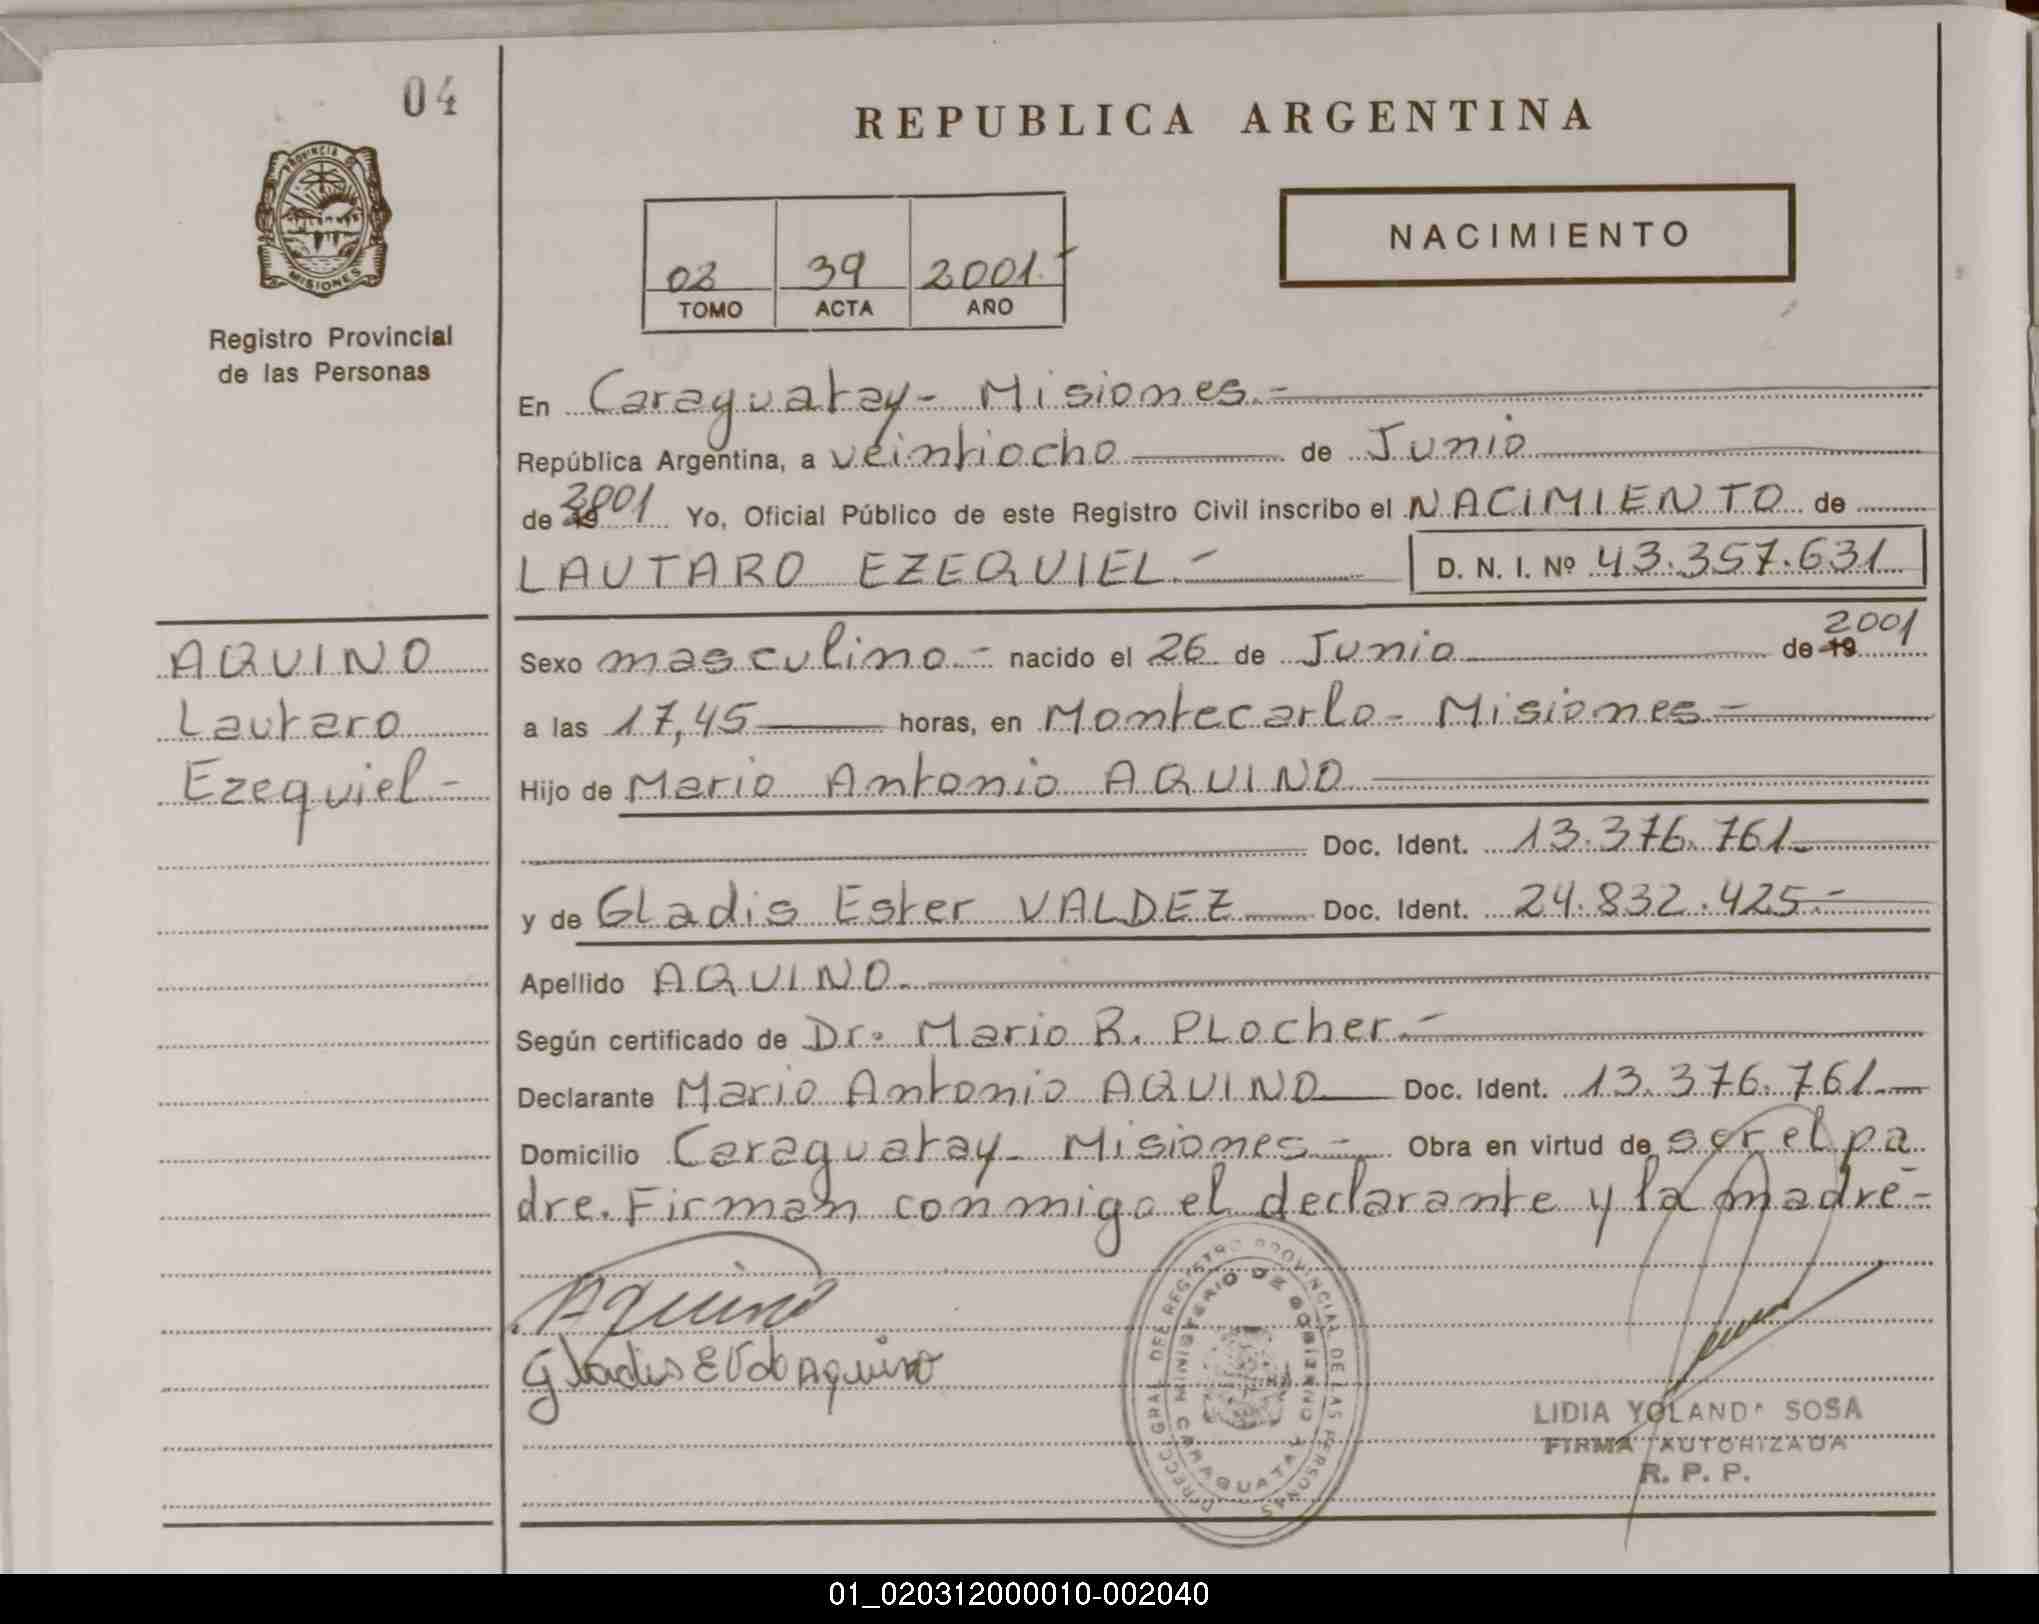 04
REPUBLICA ARGENTINA
PROVINCIA DE
MISIONES
NACIMIENTO
02 39 2001.-
TOMO ACTA AÑO
Registro Provincial
de las Personas
En Caraguatay- Misiones.-
República Argentina, a veintiocho de Junio
de 19 2001 Yo, Oficial Público de este Registro Civil inscribo el NACIMIENTO de
LAUTARO EZEQUIEL.- D. N. I. Nº 43.357.631
AQUINO
Lautaro
Ezequiel-
Sexo masculino.- nacido el 26 de Junio de 19 2001
a las 17,45 horas, en Montecarlo- Misiones-
Hijo de Mario Antonio AQUINO
Doc. Ident. 13.376.761-
y de Gladis Ester VALDEZ Doc. Ident. 24.832.425.-
Apellido AQUINO.
Según certificado de Dr. Mario R. PLocher.-
Declarante Mario Antonio AQUINO Doc. Ident. 13.376.761.-
Domicilio Caraguatay- Misiones- Obra en virtud de ser el pa
dre. Firman conmigo el declarante y la madre-
Aquino
Gladis E V de Aquino
DIRECC. GRAL. DEL REGISTRO PROVINCIAL DE LAS PERSONAS
MINISTERIO DE GOBIERNO
CARAGUATAY
LIDIA YOLANDA SOSA
FIRMA AUTORIZADA
R. P. P.
01_020312000010-002040